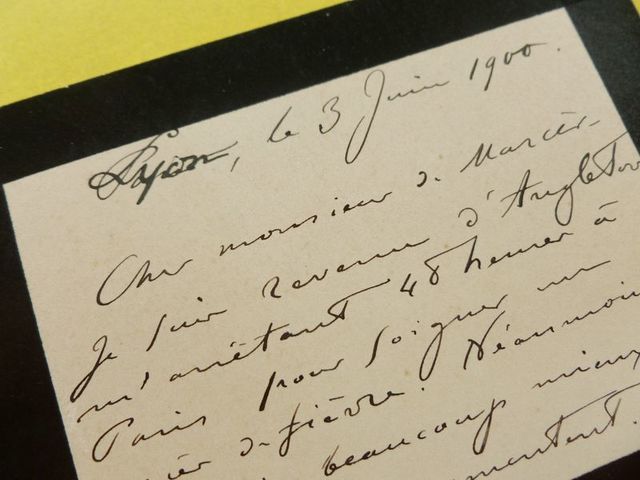 Lyon, le 3 Juin 1900.
Cher monsieur de
Je suis revenue d'Angleterr
m'arrêtant 48 heures à
Paris pour soigner un
de fièvre. Néanmoin
beaucoup mieux